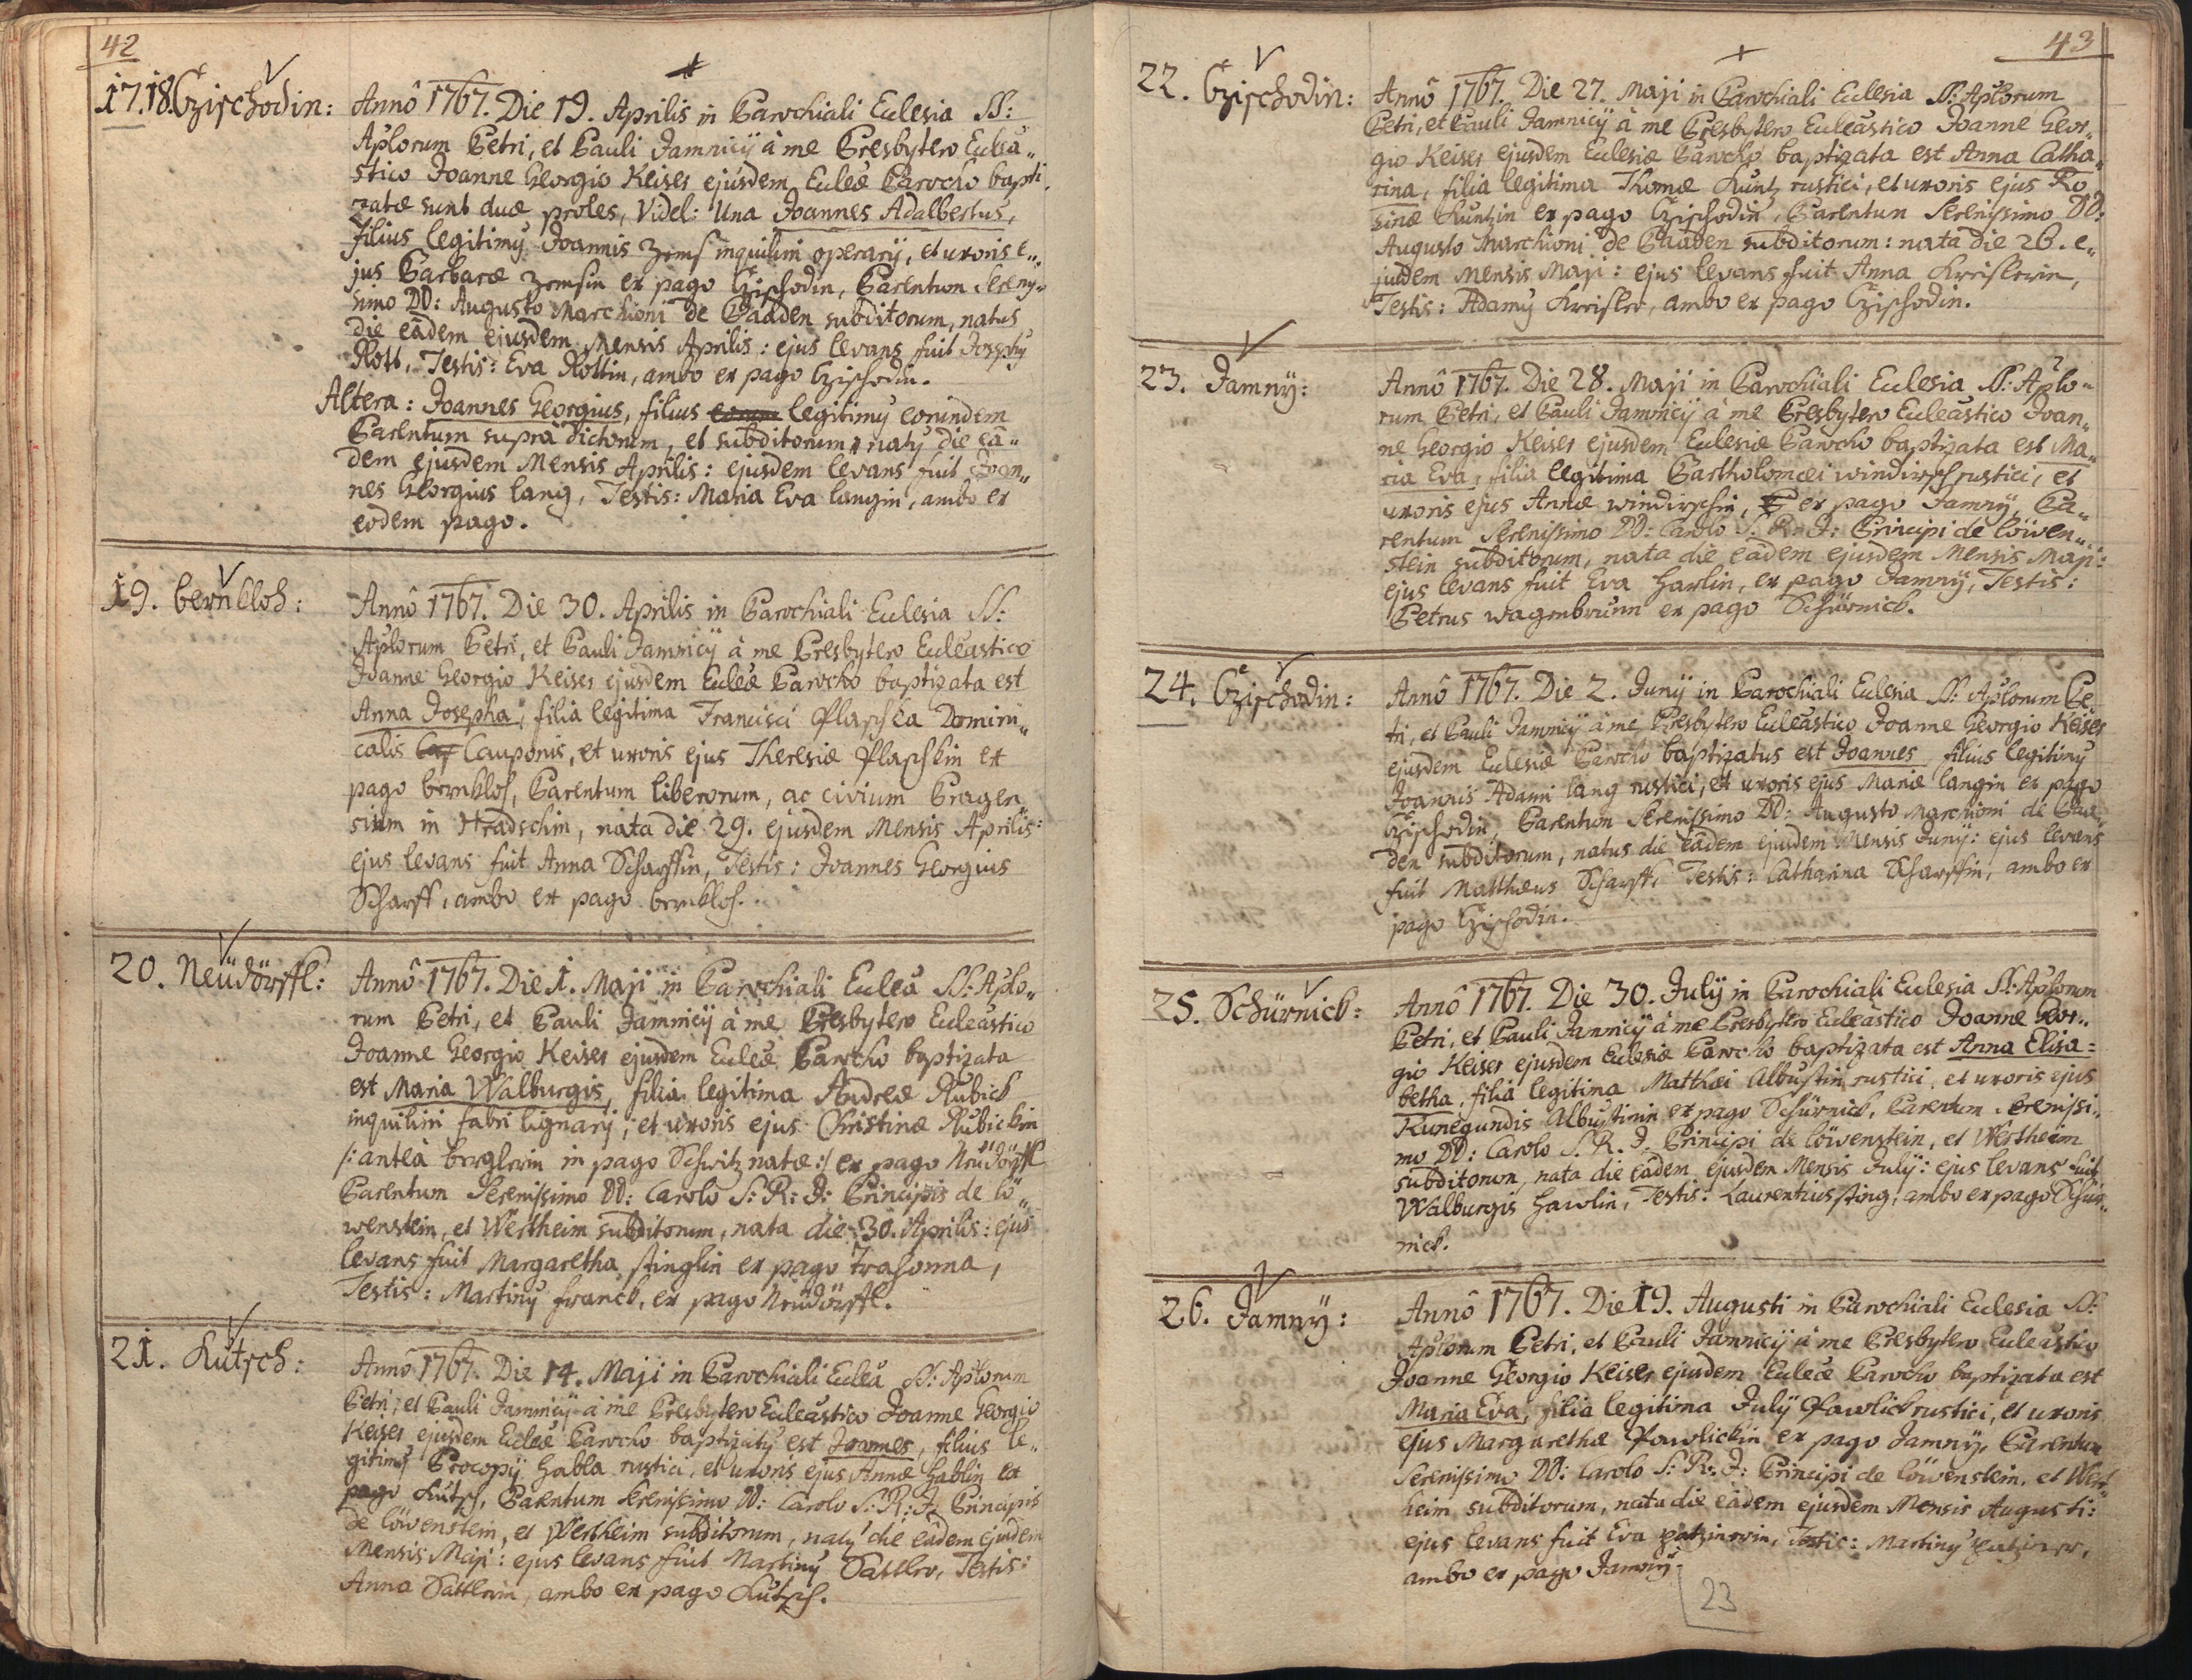 42
17.18. Czischodin:
Annô 1767. Die 19. Aprilis in Parochiali Eclesia SS:
Aplorum Petri, et Pauli Jamnicÿ à me Presbytero Eclea„
stico Joanne Georgio Keiser ejusdem Ecleæ Parocho bapti„
zatæ sunt duæ proles, Videl: Una Joannes Adalbertus,
filius legitimq Joannis Zems inquilini operarÿ, et uxoris e„
jus Barbaræ Zemsin ex pago Czischodin, Parentum Sereniss„
simo DD: Augusto Marchioni de Baaden subditorum, natus
die eâdem ejusdem Mensis Aprilis: ejus levans fuit Josephq
Rott, Testis: Eva Rottin, ambo ex pago Czischodin.
Altera: Joannes Georgius, filius legitimq eorundem
Parentum suprà dictorum, et subditorum natq die eâ„
dem ejusdem Mensis Aprilis: ejusdem levans fuit Joan„
nes Georgius lang, Testis: Maria Eva langin, ambo ex
eodem pago.
19. bernkloh:
Annô 1767. Die 30. Aprilis in Parochiali Eclesia SS:
Aplorum Petri, et Pauli Jamnicÿ à me Presbytero Ecleastico
Joanne Georgio Keiser ejusdem Ecleæ Parocho baptizata est
Anna Josepha, filia legitima Francisci Plaschka Domini„
calis Cauponis, et uxoris ejus Theresiæ Plaschkin ex
pago bernkloh, Parentum liberorum, ac civium Pragen
sium in Hradschin, nata die 29. ejusdem Mensis Aprilis:
ejus levans fuit Anna Scharffin, Testis: Joannes Georgius
Scharff, ambo ex pago bernkloh.
20. Neüdörffl:
Annô 1767. Die 1. Maji in Parochiali Eclea SS: Aplo„
rum Petri, et Pauli Jamnicÿ à me Presbytero Ecleastico
Joanne Georgio Keiser ejusdem Ecleæ Parocho baptizata
est Maria Walburgis, filia legitima Andreæ Kubick
inquilini fabri lignarÿ, et uxoris ejus Christinæ Kubickin
/: anteà berglerin in pago Schwitz natæ :/ ex pago Neüdörffl
Parentum Serenissimo DD: Carolo S: R: I: Principis de lö„
wenstein, et Wertheim subditorum, nata die 30. Aprilis: ejus
levans fuit Margaretha stinglin ex pago Trahonna,
Testis: Martinq franck, ex pago Neüdörffl.
21. Kutsch:
Annô 1767. Die 14. Maji in Parochiali Eclea SS: Aplorum
Petri, et Pauli Jamnicÿ à me Presbytero Ecleastico Joanne Georgio
Keiser ejusdem Ecleæ Parocho baptizatq est Joannes, filius le„
gitimq Procopÿ Habla rustici, et uxoris ejus Annæ Hablin ex
pago Kutsch, Parentum Serenissimo DD: Carolo S: R: I: Principis
de löwenstein, et Wertheim subditorum, natq die eâdem ejusdem
Mensis Maji: ejus levans fuit Martinq Sattler, Testis:
Anna Sattlerin, ambo ex pago Kutsch.
43
22. Czischodin:
Annô 1767. Die 27. Maji in Parochiali Eclesia SS: Aplorum
Petri, et Pauli Jamnicÿ à me Presbytero Ecleastico Joanne Geor„
gio Keiser ejusdem Eclesiæ Parocho baptizata est Anna Catha„
rina, filia legitima Thomæ Kuntz rustici, et uxoris ejus Ro
sinæ Kuntzin ex pago Czischodin, Parentum Serenissimo DD:
Augusto Marchioni de Baaden subditorum: nata die 26. e„
jusdem Mensis Maji: ejus levans fuit Anna Kreislerin,
Testis: Adamq Kreisler, ambo ex pago Czischodin.
23. Jamnÿ:
Annô 1767. Die 28. Maji in Parochiali Eclesia SS: Aplo„
rum Petri, et Pauli Jamnicÿ à me Presbytero Ecleastico Joan„
ne Georgio Keiser ejusdem Eclesiæ Parocho baptizata est Ma„
ria Eva, filia legitima Bartholomæi windirsch rustici, et
uxoris ejus Annæ windirschin, ex pago Jamnÿ, Pa„
rentum Serenissimo DD: Carolo S: R: I: Principi de löwen„
stein subditorum, nata die eâdem ejusdem Mensis Maji:
ejus levans fuit Eva Hawlin, ex pago Jamnÿ, Testis:
Petrus wagenbrunn ex pago Schürnick.
24. Czischodin:
Annô 1767. Die 2. Junÿ in Parochiali Eclesia SS: Aplorum Pe„
tri, et Pauli Jamnicÿ à me Presbytero Ecleastico Joanne Georgio Keiser
ejusdem Eclesiæ Parocho baptizatus est Joannes filius legitimq
Joannis Adami lang rustici, et uxoris ejus Mariæ langin ex pago
Czischodin, Parentum Serenissimo DD: Augusto Marchioni de Baa„
den subditorum, natus die eâdem ejusdem Mensis Junÿ: ejus levans
fuit Matthæus Scharff, Testis: Catharina Scharffin, ambo ex
pago Czischodin.
25. Schürnick:
Annô 1767. Die 30. Julÿ in Parochiali Eclesia SS: Aplorum
Petri, et Pauli Jamnicÿ à me Presbytero Ecleastico Joanne Geor„
gio Keiser ejusdem Eclesiæ Parocho baptizata est Anna Elisa=
betha, filia legitima Matthæi Albustin rustici, et uxoris ejus
Kunegundis Albustinin ex pago Schürnick, Parentum Serenissi„
mo DD: Carolo S. R. I. Principi de löwenstein, et Wertheim
subditorum, nata die eâdem ejusdem Mensis Julÿ: ejus levans fuit
Walburgis Hawlin, Testis: Laurentius sting, ambo ex pago Schür„
nick.
26. Jamnÿ:
Annô 1767. Die 19. Augusti in Parochiali Eclesia SS:
Aplorum Petri, et Pauli Jamnicÿ à me Presbytero Ecleastico
Joanne Georgio Keiser ejusdem Ecleæ Parocho baptizata est
Maria Eva, filia legitima Julÿ Pawlick rustici, et uxoris
ejus Margarethæ Pawlickin ex pago Jamnÿ, Parentum
Serenissimo DD: Carolo S: R: I: Principi de löwenstein, et Wert
heim subditorum, nata die eâdem ejusdem Mensis Augusti:
ejus levans fuit Eva patzinerin, Testis: Martinq patziner,
ambo ex pago Jamnÿ.
23